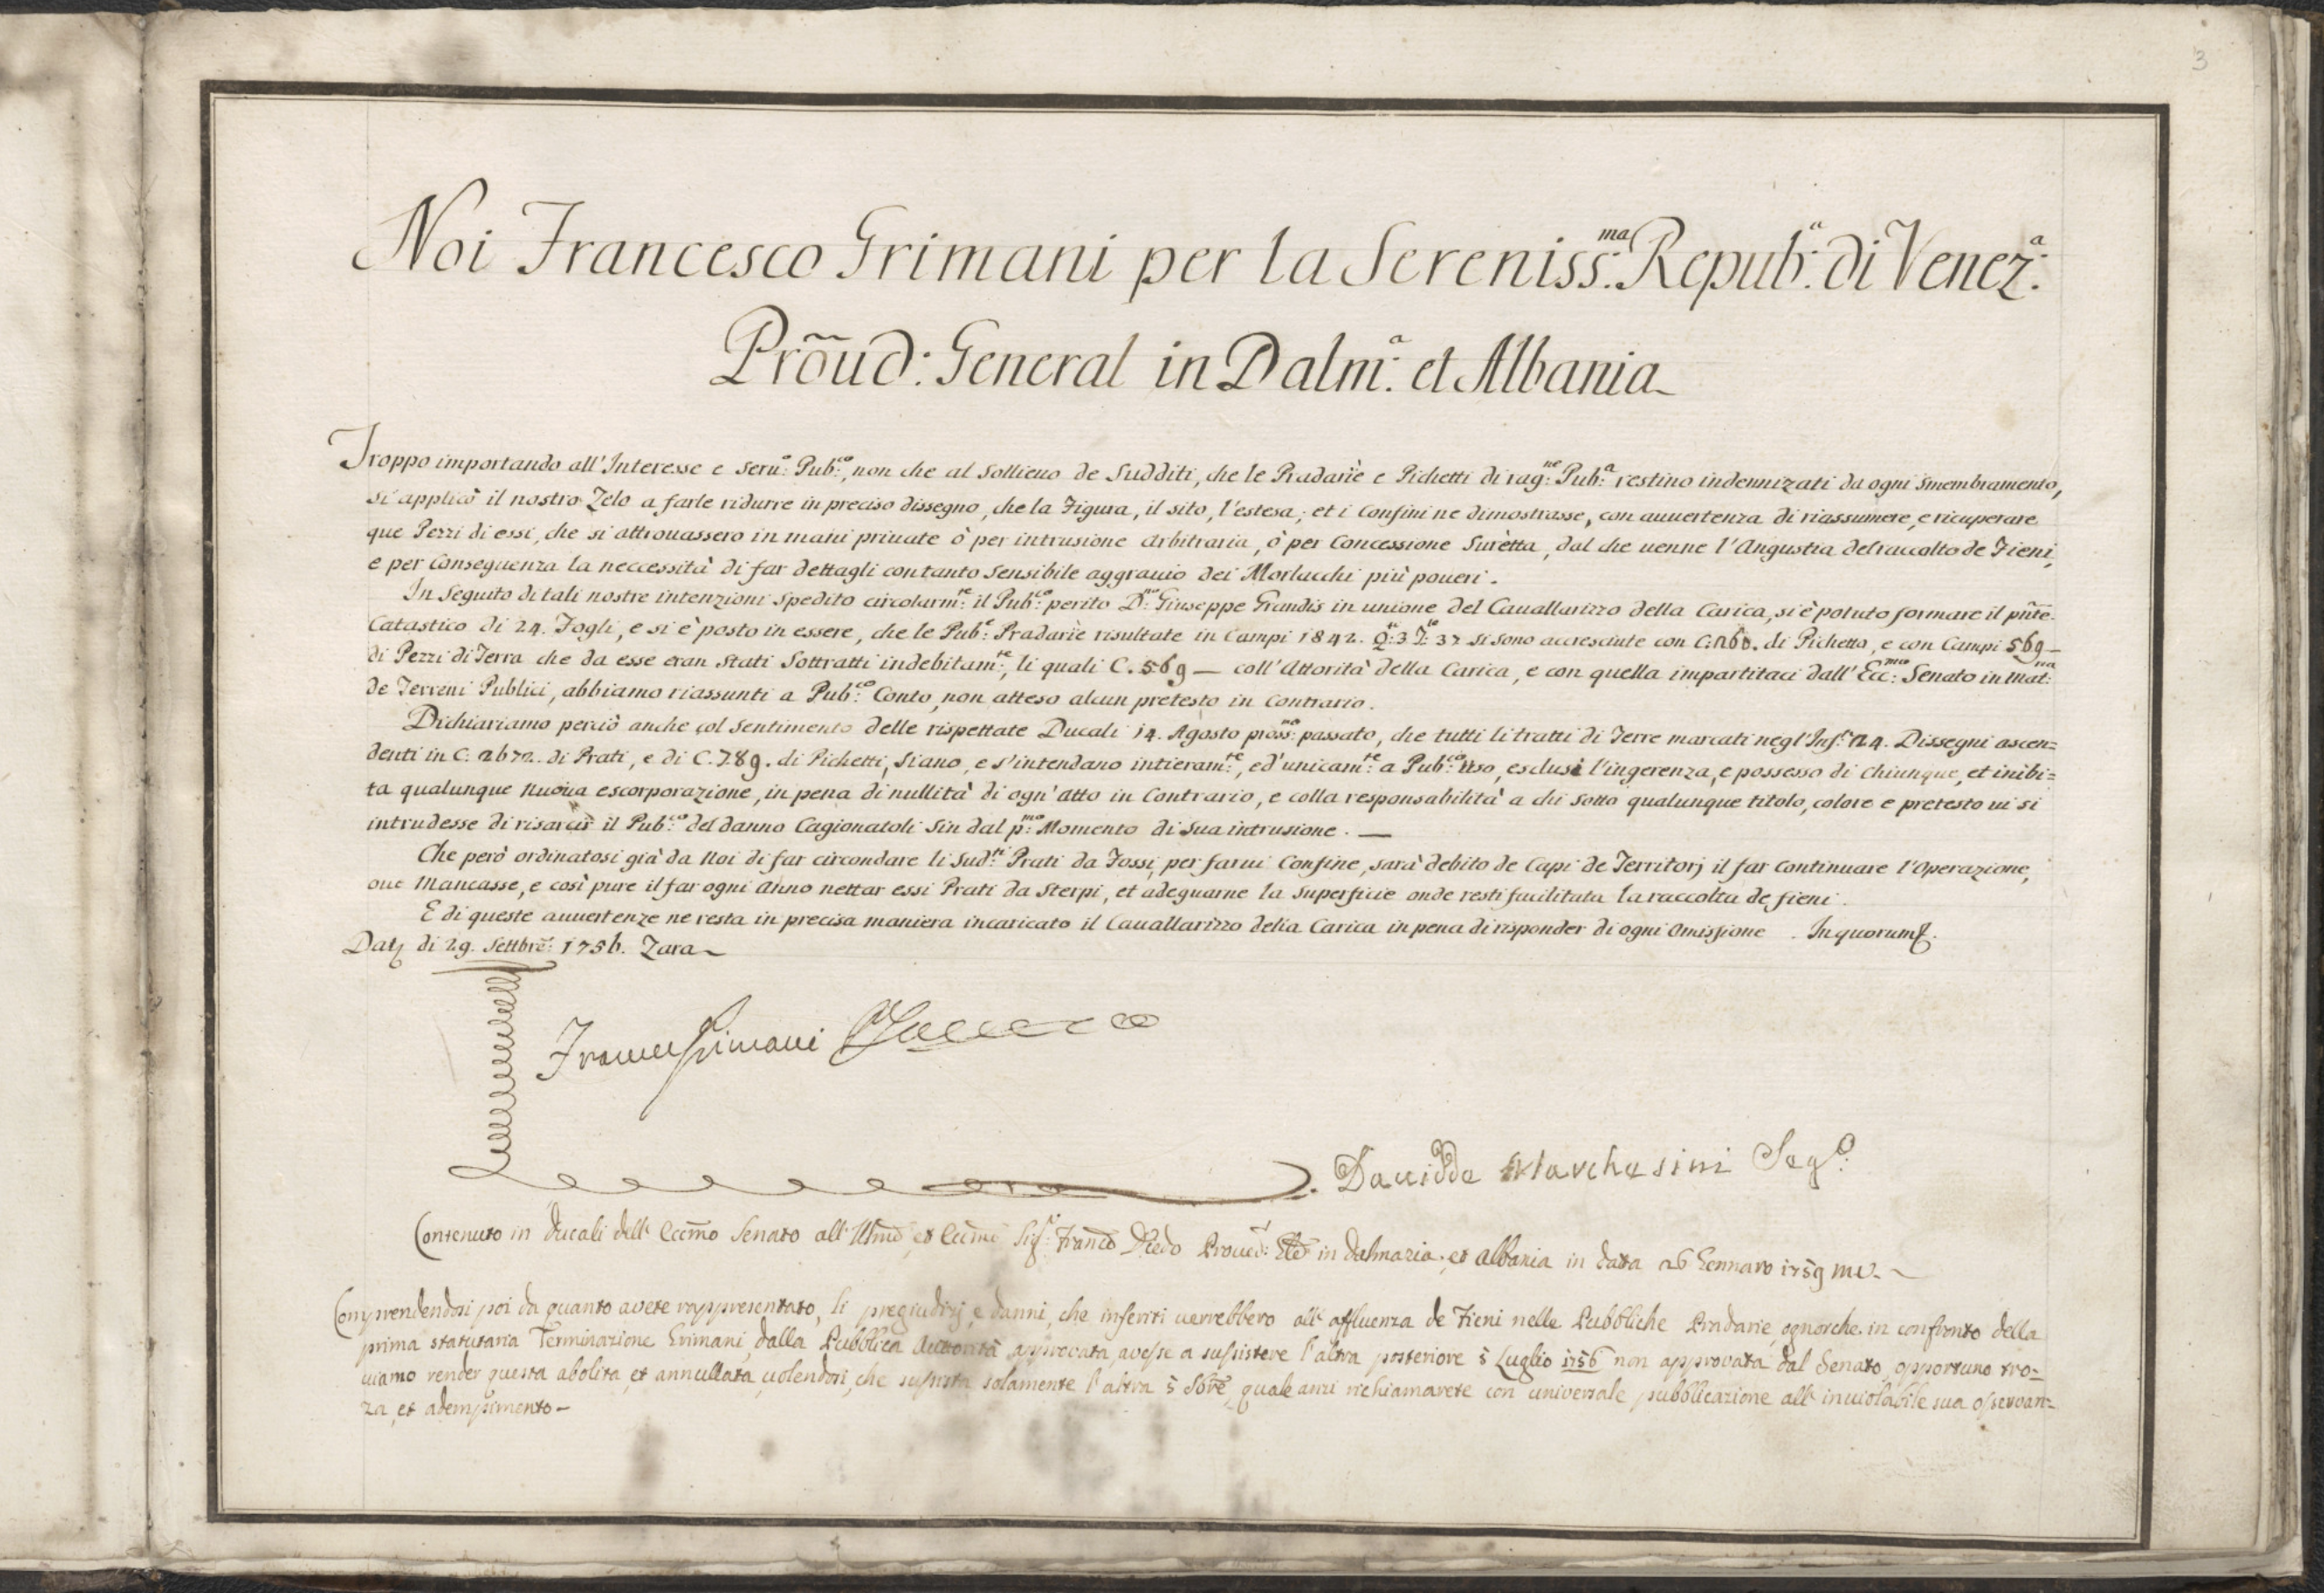 3
Noi Francesco Grimani per la Sereniss:ma Repub:a di Venez:a
Prõud: General in Dalm:a et Albania
Troppo importando all'Interesse e seru:o Pub:co, non che al sollieuo de Sudditi, che le Pradarie e Pichetti di rag:ne Pub:a restino indennizati da ogni smembramento,
si applicò il nostro Zelo a farle ridurre in preciso dissegno, che la Figura, il sito, l'estesa, et i Confini ne dimostrasse, con auuertenza di riassumere, e ricuperare
que Pezzi di essi, che si attrouassero in mani priuate ò per intrusione Arbitraria, ò per Concessione Surètta, dal che uenne l'Angustia del raccolto de Fieni,
e per Conseguenza la neccessità di far dettagli con tanto sensibile aggrauio dei Morlacchi più poueri.
In Seguito di tali nostre intenzioni spedito circolarm:te il Pub:co perito D:n Giuseppe Grandis in unione del Cauallarizzo della Carica, si è potuto formare il pñte
Catastico di 24. Fogli, e si è posto in essere, che le Pub:e Pradarie risultate in Campi 1842. Q:e 3 T:e 37 si sono accresciute con C: 260. di Pichetto, e con Campi 569 —
di Pezzi di Terra che da esse eran stati Sottratti indebitam:te, li quali C. 569 — coll'Attorità della Carica, e con quella impartitaci dall'Ecc:mo Senato in mat:na
de Terreni Publici, abbiamo riassunti a Pub:co Conto, non atteso alcun pretesto in Contrario.
Dichiariamo perciò anche col sentimento delle rispettate Ducali 14. Agosto pross:mo passato, che tutti li tratti di Terre marcati negl'Inf:ti 24. Dissegni ascen=
denti in C. 2672. di Prati, e di C. 789. di Pichetti, siano, e s'intendano intieram:te, ed'unicam:te a Pub:co Uso, esclusi l'ingerenza, e possesso di chiunque, et inibi=
ta qualunque nuoua escorporazione, in pena di nullità di ogn'atto in Contrario, e colla responsabilità a chi sotto qualunque titolo, colore e pretesto ui si
intrudesse di risarcir il Pub:co del danno Cagionatoli sin dal p:mo Momento di sua intrusione. —
Che però ordinatosi già da Noi di far circondare li Sud:ti Prati da Fossi, per farui Confine, sarà debito de Capi de Territorj il far Continuare l'Operazione,
oue Mancasse, e così pure il far ogni Anno nettar essi Prati da Sterpi, et adeguarne la superficie onde resti facilitata la raccolta de fieni.
E di queste auuertenze ne resta in precisa maniera incaricato il Cauallarizzo della Carica in pena di risponder di ogni Omissione. In quorum
di 29. Settbre: 1756. Zara
Grimani
Dauidde Marchesini Seg:o
Contenuto in Ducali dell' Eccmo Senato all' Illmo, et Eccmo Sig:r Franco Diedo Proued:r in Dalmazia, et Albania in data 26 Gennaro 1759 mv.
Comprendendosi poi da quanto avete rappresentato, li pregiudizj, e danni, che inferiti uerrebbero all' affluenza de Fieni nelle Pubbliche Pradarie, ognorche in confronto della
prima statutaria Terminazione Grimani, dalla Pubblica Auttorità approvata, avesse a sussistere l'altra posteriore 5 Luglio 1756 non approvata dal Senato, opportuno tro=
uiamo render questa abolita, et annullata, uolendosi, che sussista solamente l'altra 5 quale anzi richiamarete con universale pubblicazione all' inuiolabile sua osservan=
za, et adempimento —